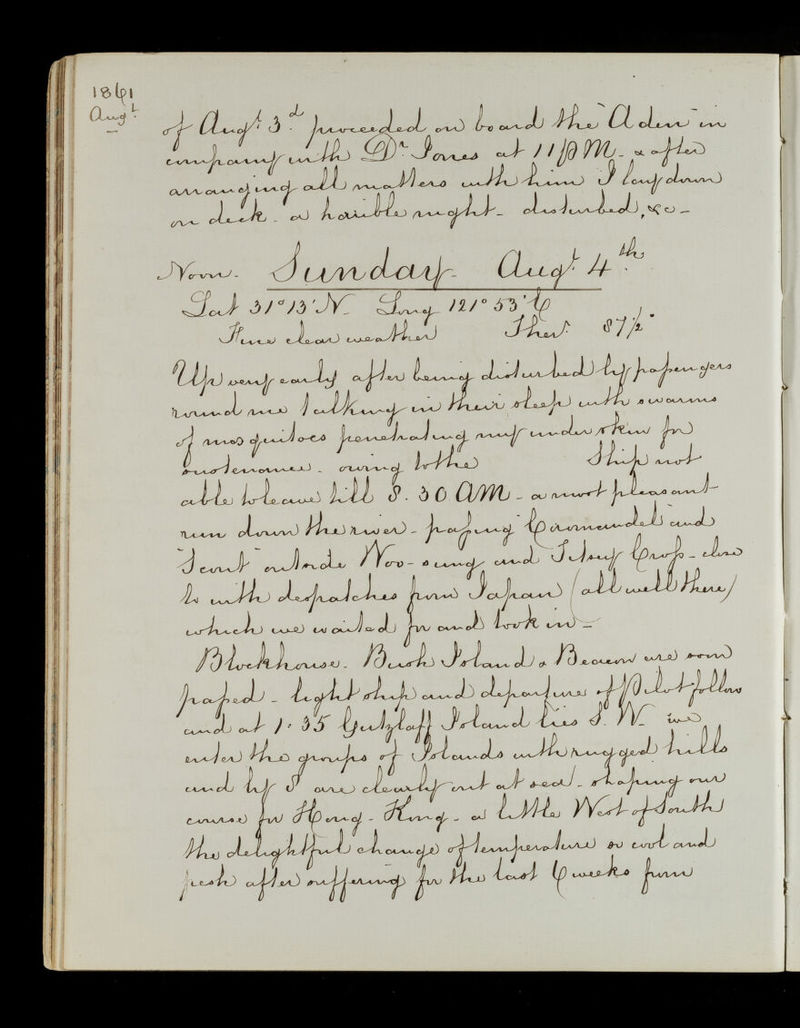 1861
Augt.
of Augt. 3d. proceeded on board the "Aden" in
company with Dr. Jones at 11 PM - & after
arranging all matters with him I lay down
on deck - a horrible night - disturbed, &c -
Noon - Sunday - Augt. 4th.
Lat 31° 13' N - Long 121° 53' E
Fine clear weather Ther. 87½°
Up very early after being disturbed by passengers
round me talking in their sleep with swarms
of mosquitoes penetrating my under skin for
sustenance - owing to the Ship not
able to leave till 8.30 AM - a most pleasant
run down the river - passing "Coromandel" and
"Scout" outside Woo-sung and Fitzroy Cross - close
to with despatches from Japan (all well there)
which we waited for and took in -
Blockhouse - Bush Island & Beacon are soon
passed - light ship and departure of Pilot follow
and at 1.35 Gutzlaff Island lies S. W. we
enter the groups of Islands with rugged hills
and by 8 are clearly out at sea - shaping our
course for Hong-Kong - a little West of South
the delightful change of temperature so cool and
fresh after suffering for the last 6 weeks from